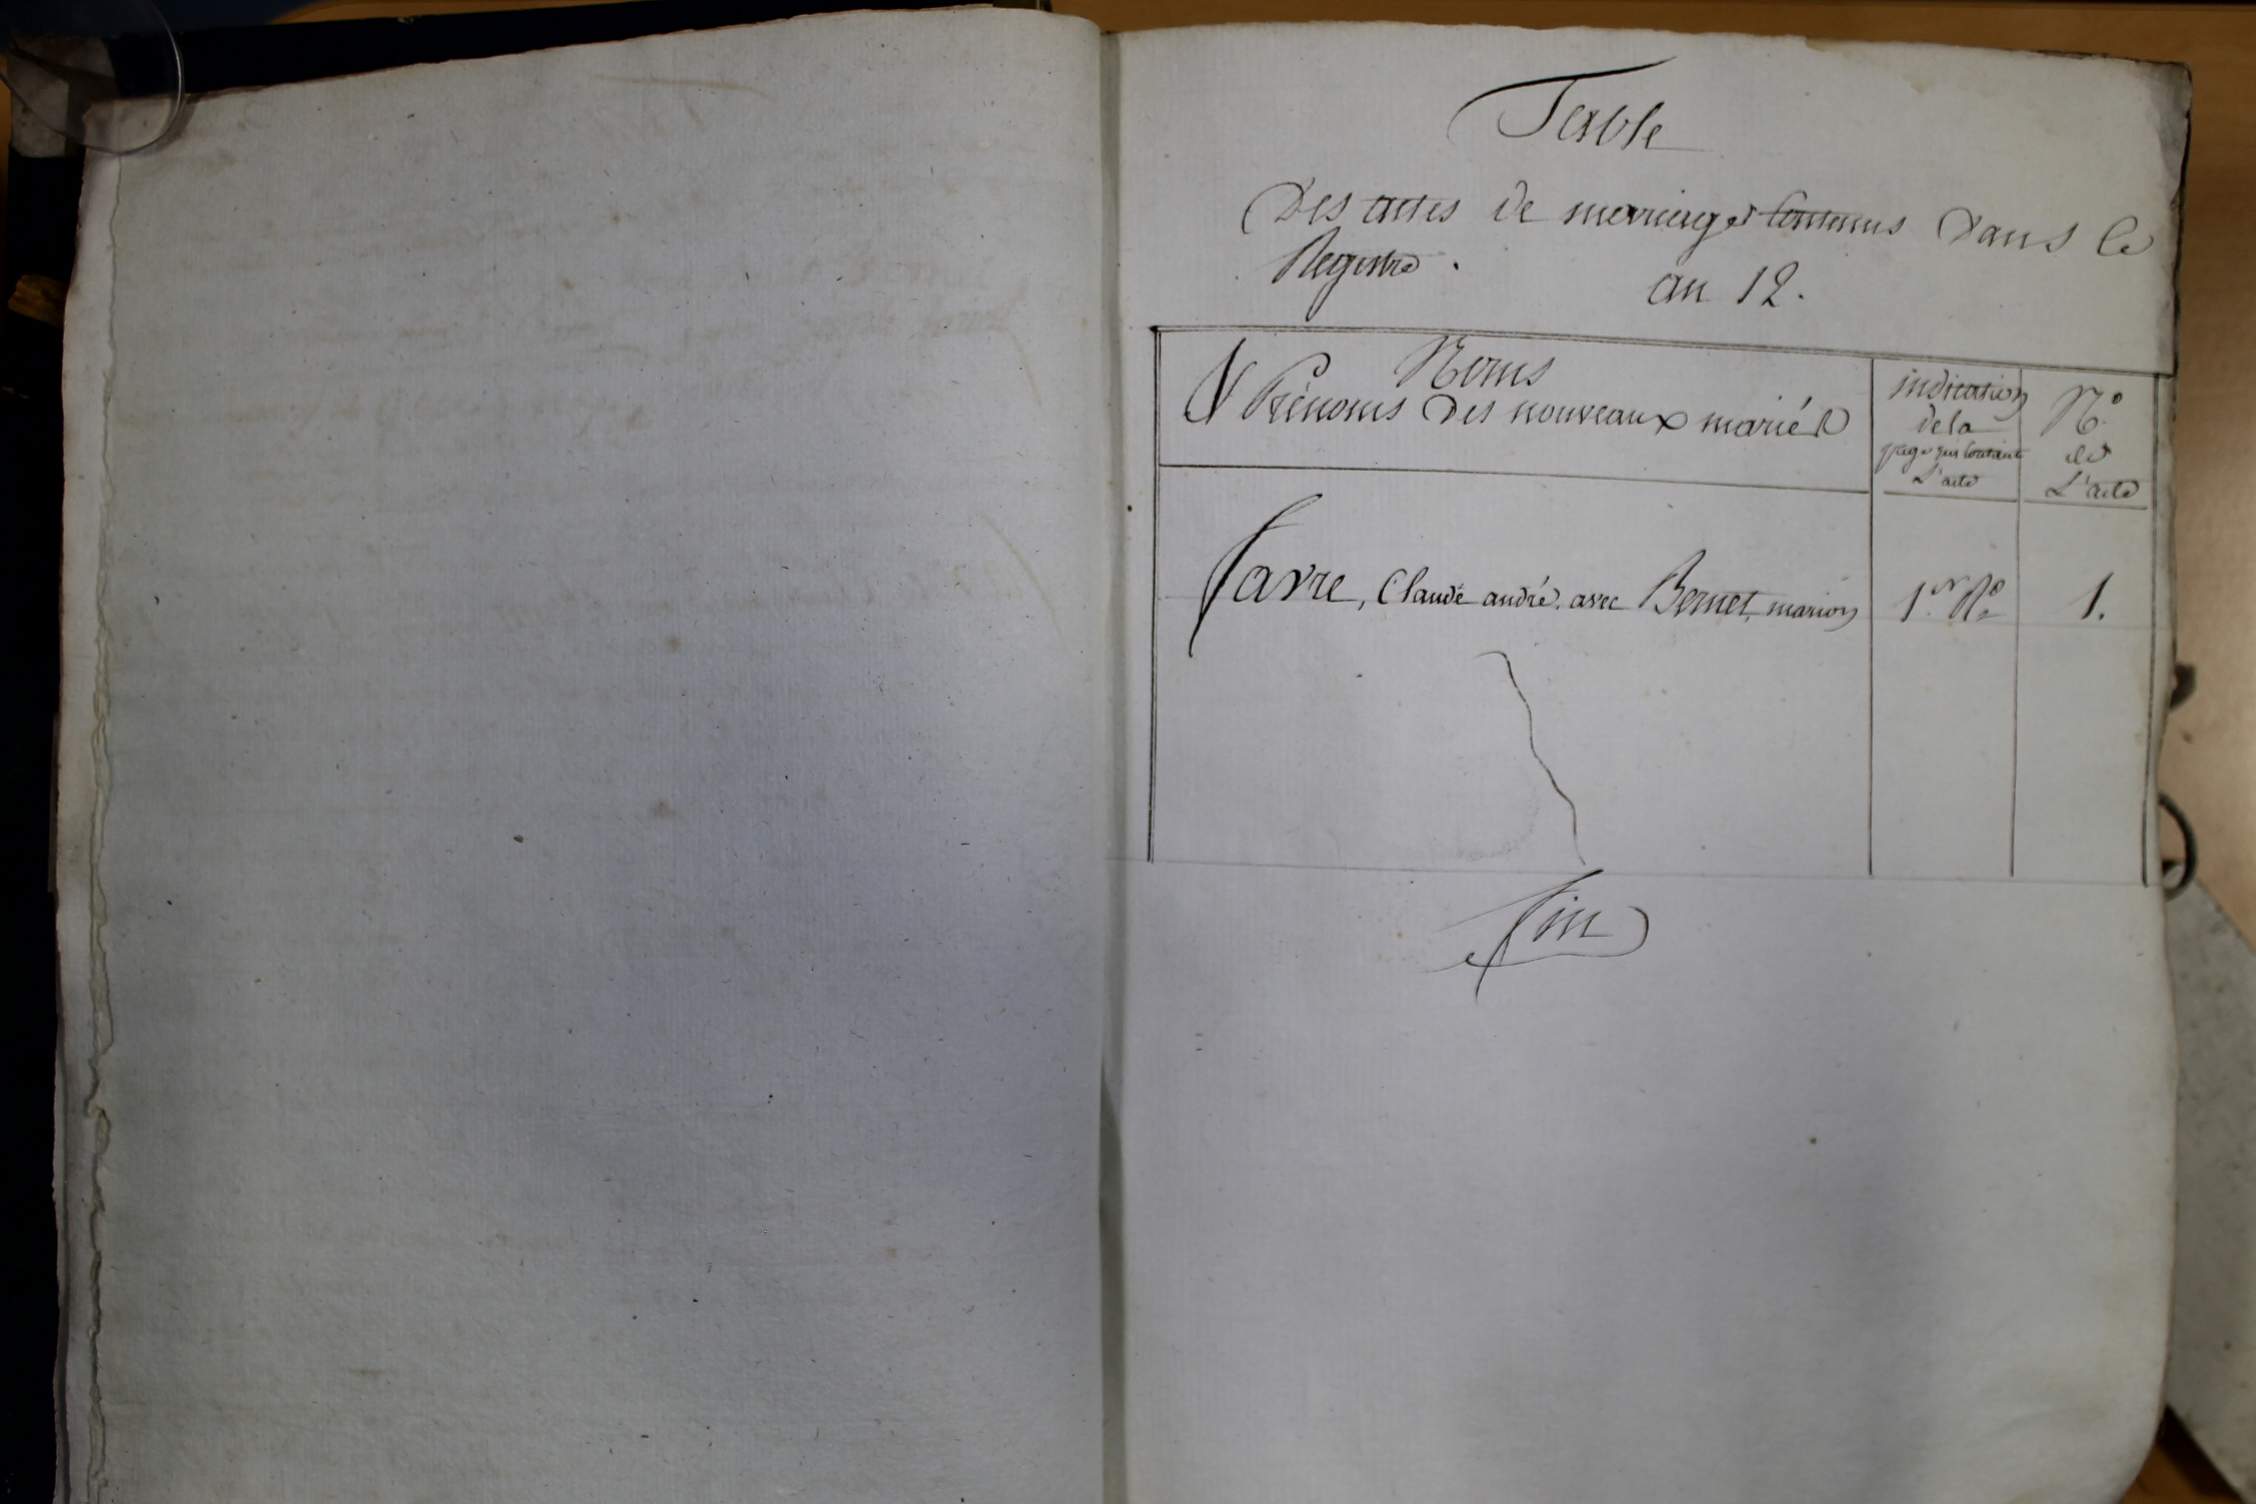 Table
Des actes de mariages Contenus Dans le
Registre.
an 12.
Noms
& Prénoms Des nouveaux mariés
indication
de la
page qui Contient
L'acte
N.º
de
L'acte
Favre, Claude andré. avec Bernet, marion
1.er Rº
1.
Fin